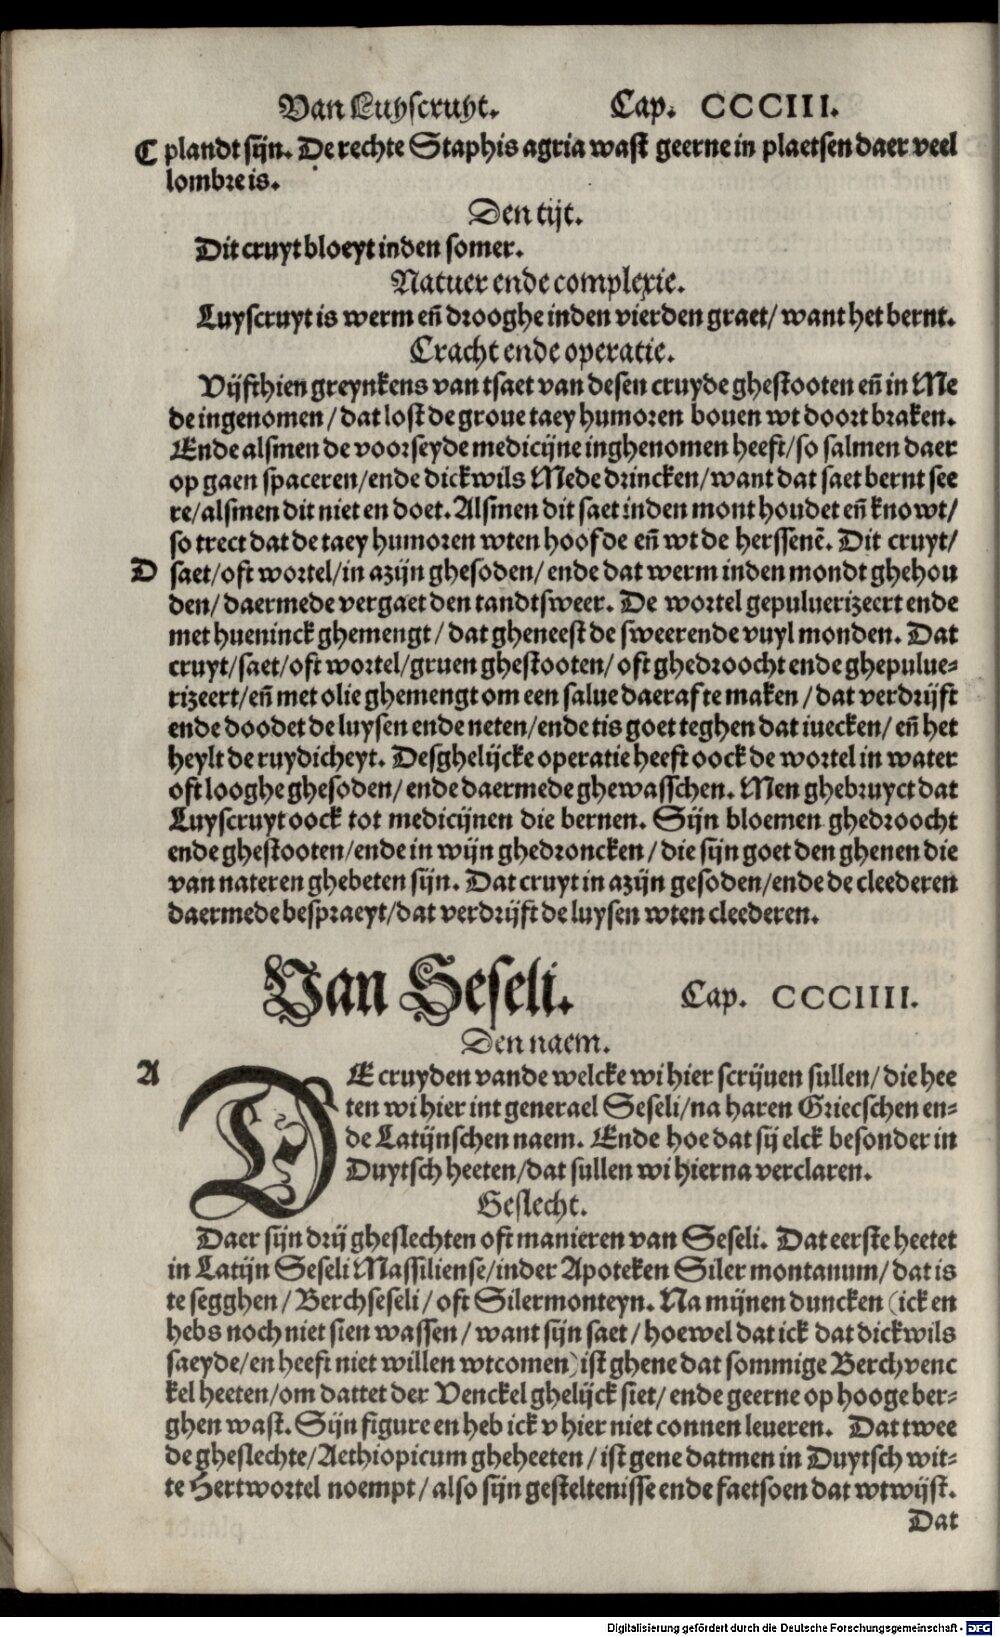 Van Luyscruyt. Cap. CCCIII.
C plandt sijn. De rechte Staphis agria wast geerne in plaetsen daer veel
lombre is.
Den tijt.
Dit cruyt bloeyt inden somer.
Natuer ende complexie.
Luyscruyt is werm eñ drooghe inden vierden graet/ want het bernt.
Cracht ende operatie.
Vijfthien greynkens van tsaet van desen cruyde ghestooten eñ in Me
de ingenomen/ dat lost de groue taey humoren bouen wt doort braken.
Ende alsmen de voorseyde medicijne inghenomen heeft/ so salmen daer
op gaen spaceren/ ende dickwils Mede drincken/ want dat saet bernt see
re/ alsmen dit niet en doet. Alsmen dit saet inden mont houdet eñ knowt/
so trect dat de taey humoren wten hoofde eñ wt de herssenē. Dit cruyt/
D saet/ oft wortel/ in azijn ghesoden/ ende dat werm inden mondt ghehou
den/ daermede vergaet den tandtsweer. De wortel gepuluerizeert ende
met hueninck ghemengt/ dat gheneest de sweerende vuyl monden. Dat
cruyt/ saet/ oft wortel/ gruen ghestooten/ oft ghedroocht ende ghepulue-
rizeert/ eñ met olie ghemengt om een salue daeraf te maken/ dat verdrijft
ende doodet de luysen ende neten/ ende tis goet teghen dat iuecken/ eñ het
heylt de ruydicheyt. Desghelijcke operatie heeft oock de wortel in water
oft looghe ghesoden/ ende daermede ghewasschen. Men ghebruyct dat
Luyscruyt oock tot medicijnen die bernen. Sijn bloemen ghedroocht
ende ghestooten/ ende in wijn ghedroncken/ die sijn goet den ghenen die
van nateren ghebeten sijn. Dat cruyt in azijn gesoden/ ende de cleederen
daermede bespraeyt/ dat verdrijft de luysen wten cleederen.
Van Seseli. Cap. CCCIIII.
Den naem.
A DE cruyden vande welcke wi hier scrijuen sullen/ die hee
ten wi hier int generael Seseli/ na haren Griecschen en-
de Latijnschen naem. Ende hoe dat sij elck besonder in
Duytsch heeten/ dat sullen wi hierna verclaren.
Geslecht.
Daer sijn drij gheslechten oft manieren van Seseli. Dat eerste heetet
in Latijn Seseli Massiliense/ inder Apoteken Siler montanum/ dat is
te segghen/ Berchseseli/ oft Silermonteyn. Na mijnen duncken (ick en
hebs noch niet sien wassen/ want sijn saet/ hoewel dat ick dat dickwils
saeyde/ en heeft niet willen wtcomen) ist ghene dat sommige Berchvenc
kel heeten/ om dattet der Venckel ghelijck siet/ ende geerne op hooge ber-
ghen wast. Sijn figure en heb ick v hier niet connen leueren. Dat twee
de gheslechte/ Aethiopicum gheheeten/ ist gene datmen in Duytsch wit-
te Hertwortel noempt/ also sijn gesteltenisse ende faetsoen dat wtwijst.
Dat
Digitalisierung gefördert durch die Deutsche Forschungsgemeinschaft - DFG